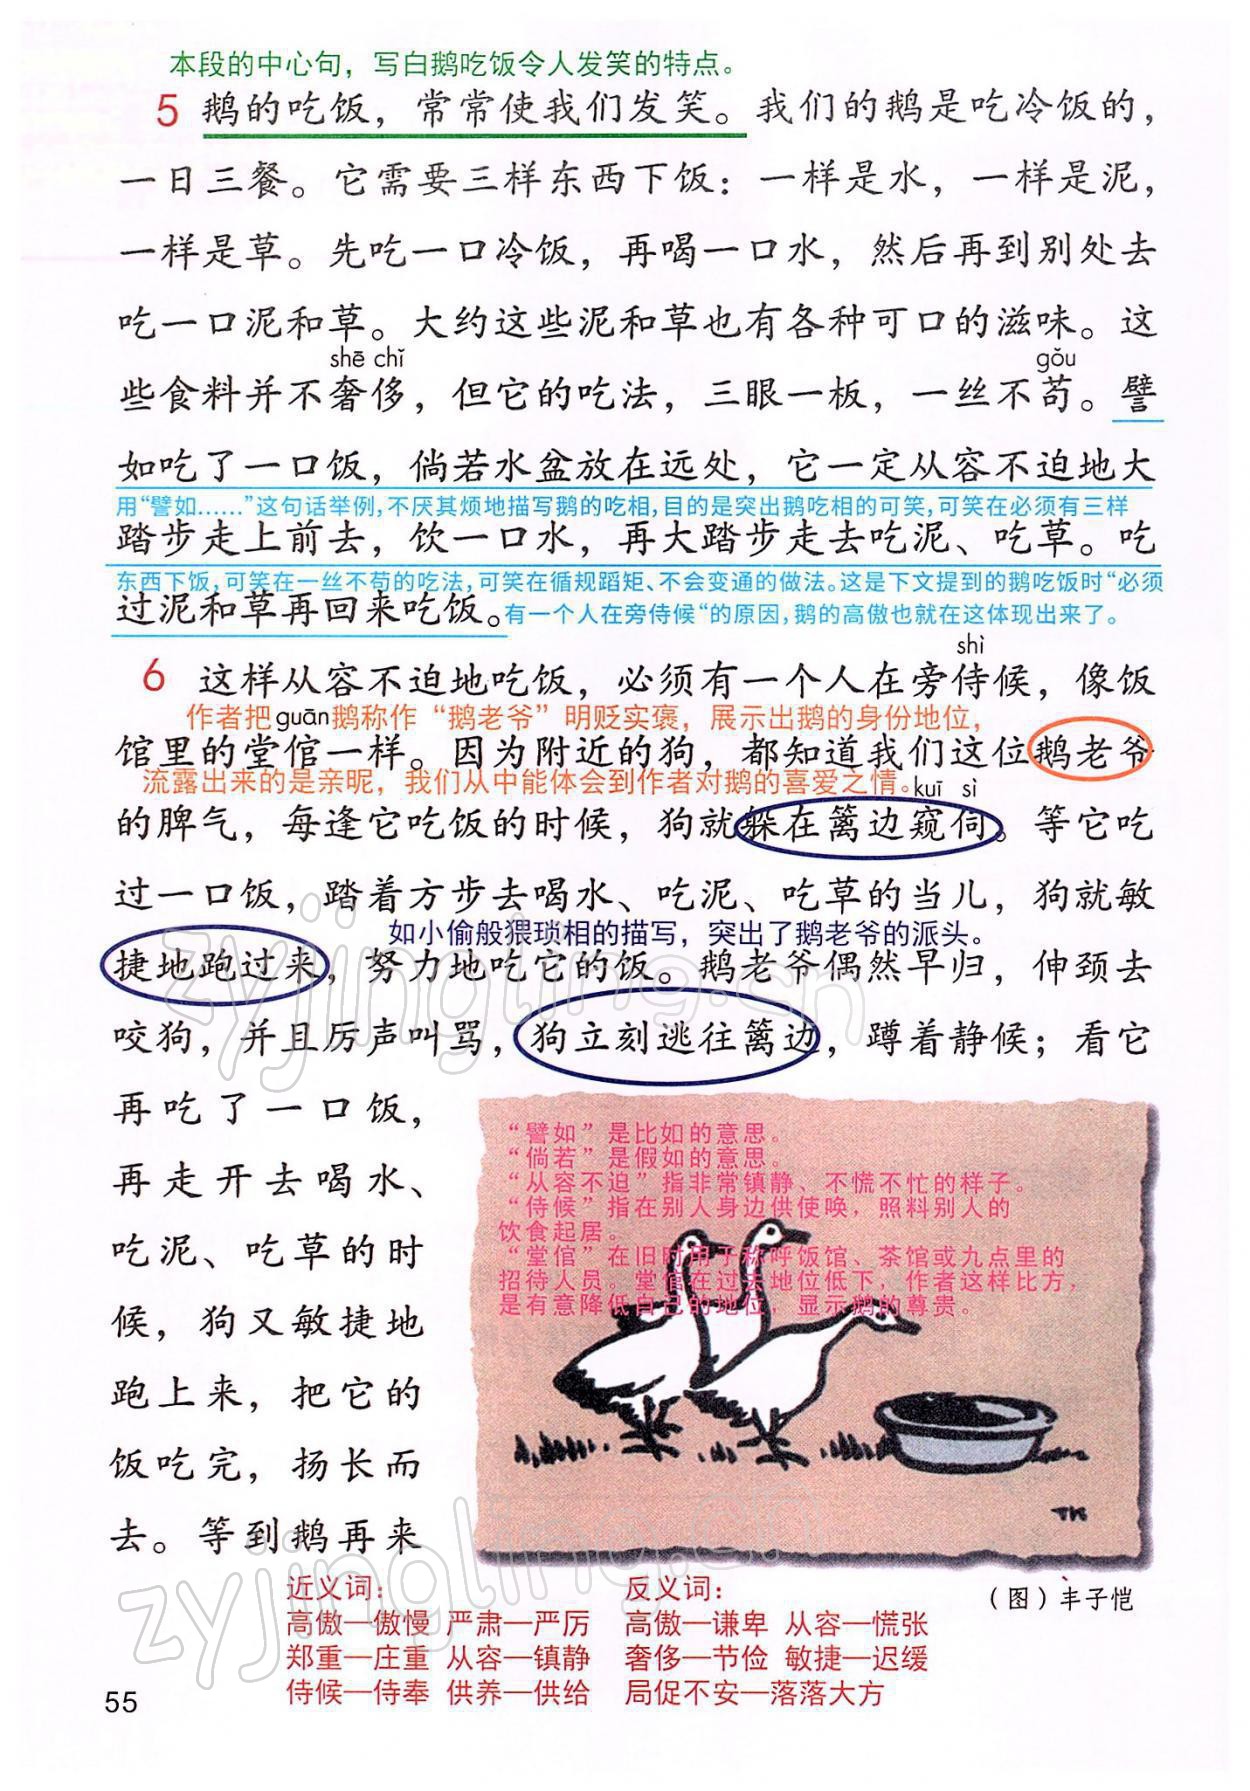 本段的中心句，写白鹅吃饭令人发笑的特点。
5 鹅的吃饭，常常使我们发笑。我们的鹅是吃冷饭的，
一日三餐。它需要三样东西下饭：一样是水，一样是泥，
一样是草。先吃一口冷饭，再喝一口水，然后再到别处去
吃一口泥和草。大约这些泥和草也有各种可口的滋味。这
shē chǐ gǒu
些食料并不奢侈，但它的吃法，三眼一板，一丝不苟。譬
如吃了一口饭，倘若水盆放在远处，它一定从容不迫地大
用“譬如……”这句话举例，不厌其烦地描写鹅的吃相，目的是突出鹅吃相的可笑，可笑在必须有三样
踏步走上前去，饮一口水，再大踏步走去吃泥、吃草。吃
东西下饭，可笑在一丝不苟的吃法，可笑在循规蹈矩、不会变通的做法。这是下文提到的鹅吃饭时“必须
过泥和草再回来吃饭。
有一个人在旁侍候“的原因，鹅的高傲也就在这体现出来了。
shì
6 这样从容不迫地吃饭，必须有一个人在旁侍候，像饭
作者把鹅称作“鹅老爷”明贬实褒，展示出鹅的身份地位，
guān
馆里的堂倌一样。因为附近的狗，都知道我们这位鹅老爷
流露出来的是亲昵，我们从中能体会到作者对鹅的喜爱之情。
kuī sì
的脾气，每逢它吃饭的时候，狗就躲在篱边窥伺。等它吃
过一口饭，踏着方步去喝水、吃泥、吃草的当儿，狗就敏
如小偷般猥琐相的描写，突出了鹅老爷的派头。
捷地跑过来，努力地吃它的饭。鹅老爷偶然早归，伸颈去
咬狗，并且厉声叫骂，狗立刻逃往篱边，蹲着静候；看它
再吃了一口饭，
再走开去喝水、
吃泥、吃草的时
候，狗又敏捷地
跑上来，把它的
饭吃完，扬长而
去。等到鹅再来
“譬如”是比如的意思。
“倘若”是假如的意思。
“从容不迫”指非常镇静、不慌不忙的样子。
“侍候”指在别人身边供使唤，照料别人的
饮食起居。
“堂倌”在旧时用于称呼饭馆、茶馆或九点里的
招待人员。堂倌在过去地位低下，作者这样比方，
是有意降低自己的地位，显示鹅的尊贵。
TK
（图）丰子恺
近义词：
高傲—傲慢 严肃—严厉
郑重—庄重 从容—镇静
侍候—侍奉 供养—供给
反义词：
高傲—谦卑 从容—慌张
奢侈—节俭 敏捷—迟缓
局促不安—落落大方
55
zyjingling.cn
zyjingling.cn